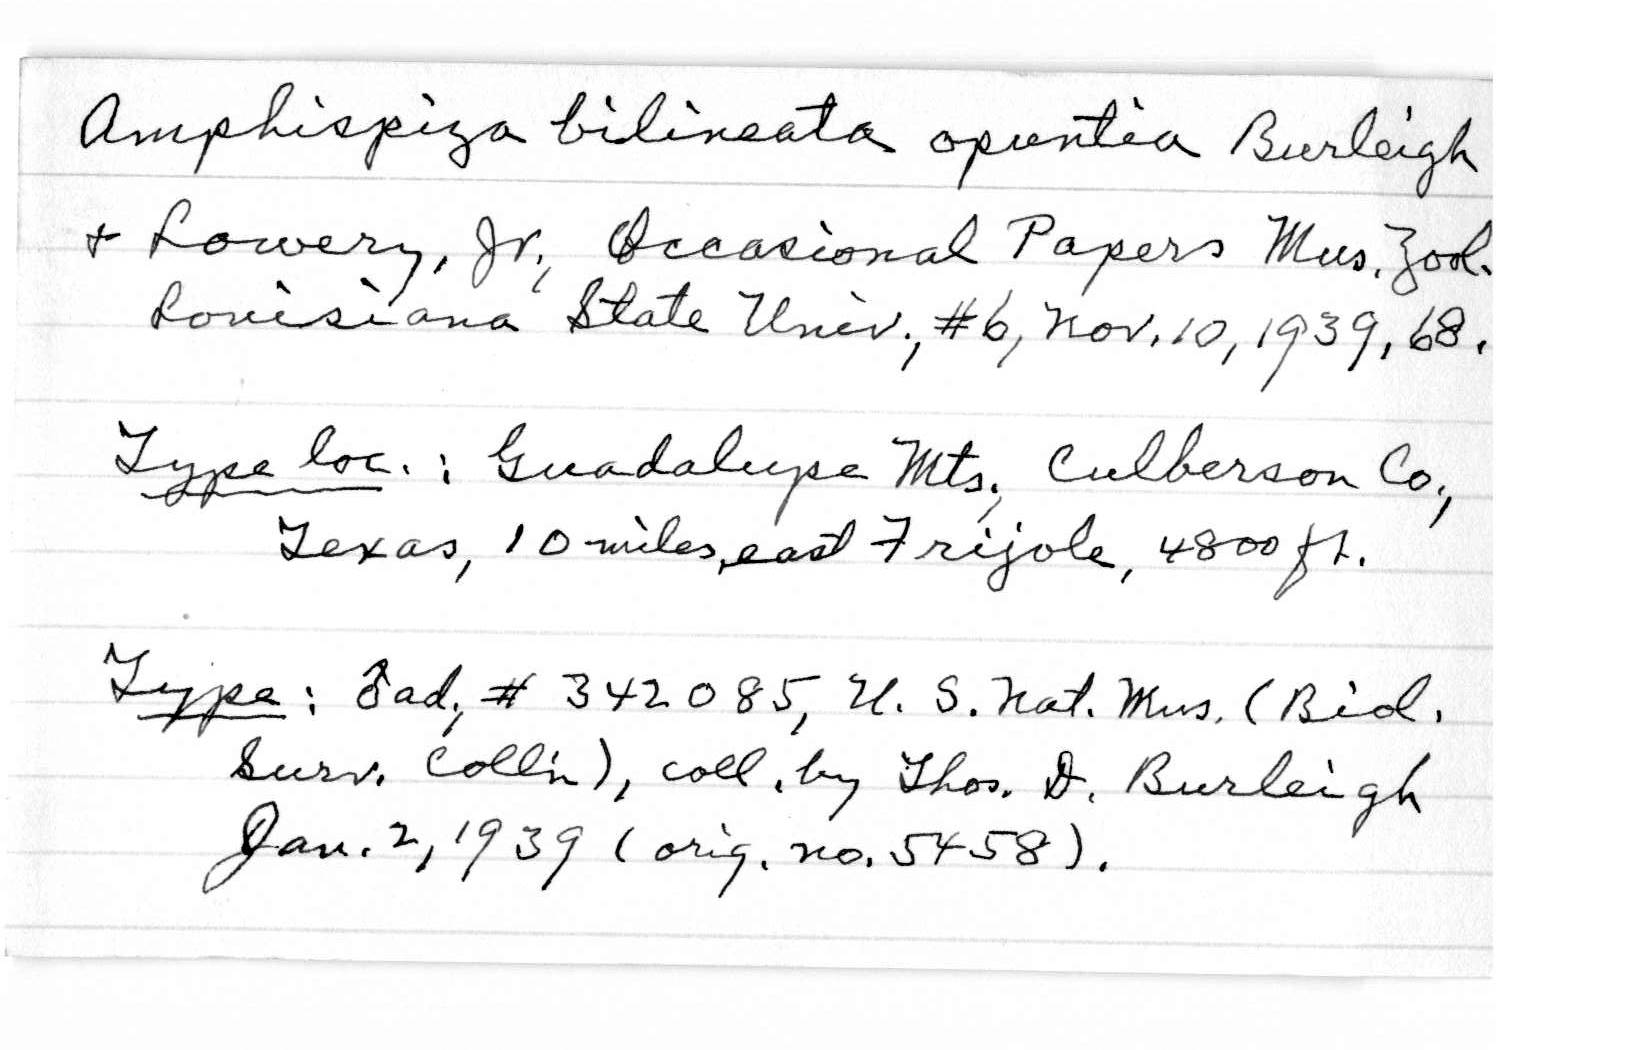 Amphispiza bilineata opuntia Burleigh
+ Lowery, Jr., Occasional Papers Mus. Zool.
Louisiana State Univ., #6, Nov. 10, 1939, 68.
Type loc. : Guadalupe Mts., Culberson Co.,
Texas, 10 miles, east Frijole, 4800 ft.
Type : ♂ ad., # 342085, U. S. Nat. Mus. (Biol.
Surv. Coll'n), coll. by Thos. D. Burleigh
Jan. 2, 1939 (orig. no. 5458).